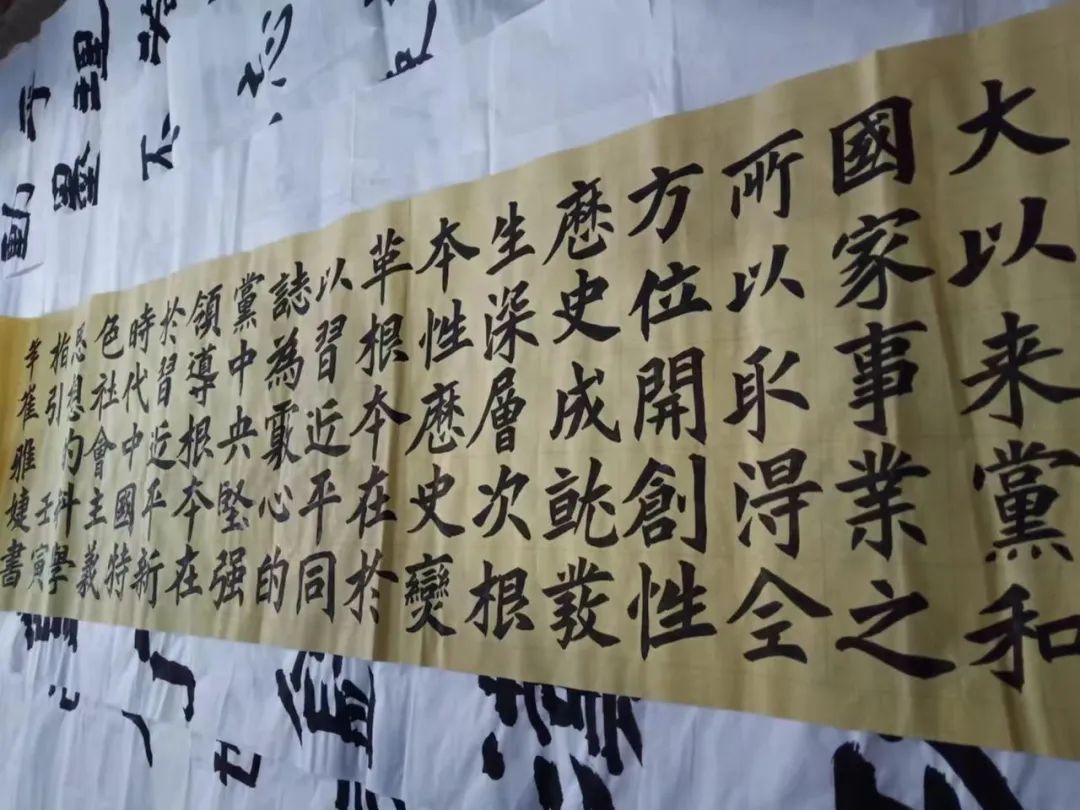 大以来黨和
國家事業之
所以取得全
方位開創性
歷史成就發
生深層次根
本性歷史變
革根本在於
以習近平同
誌為覈心的
黨中央堅强
領導根本在
於習近平新
時代中國特
色社會主義
思想的科學
指引壬寅
年崔雅婕書